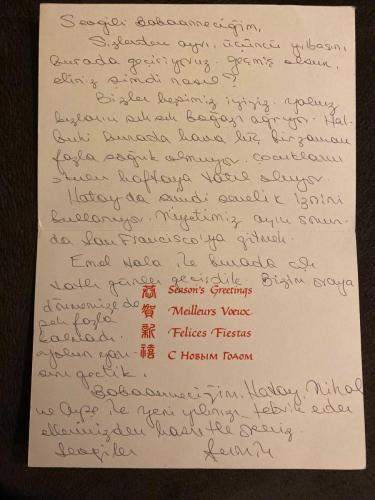 Sevgili Babaanneciğim,
Sizlerden ayrı, üçüncü yılbaşını
burada geçiriyoruz. Geçmiş olsun,
eliniz şimdi nasıl?
Bizler hepimiz iyiyiz. Yalnız
kızların sık sık boğazı ağrıyor. Hal-
buki burada hava hiç bir zaman
fazla soğuk olmuyor. Çocukların
haftaya tatil oluyor.
Hatay da şimdi senelik iznini
kullanıyor. Niyetimiz ayın sonun-
da San Francisco'ya gitmek.
Emel Hala ile burada çok
tatlı günler geçirdik. Bizim oraya
dönmemize de
pek fazla
kalmadı.
yolun yarı-
sını geçtik.
恭賀新禧
Season's Greetings
Meilleurs Vœux
Felices Fiestas
С Новым Годом
Babaanneciğim, Hatay, Nihal
ve Ayşe ile yeni yılınızı tebrik eder
ellerinizden hasretle öperiz.
Sevgiler